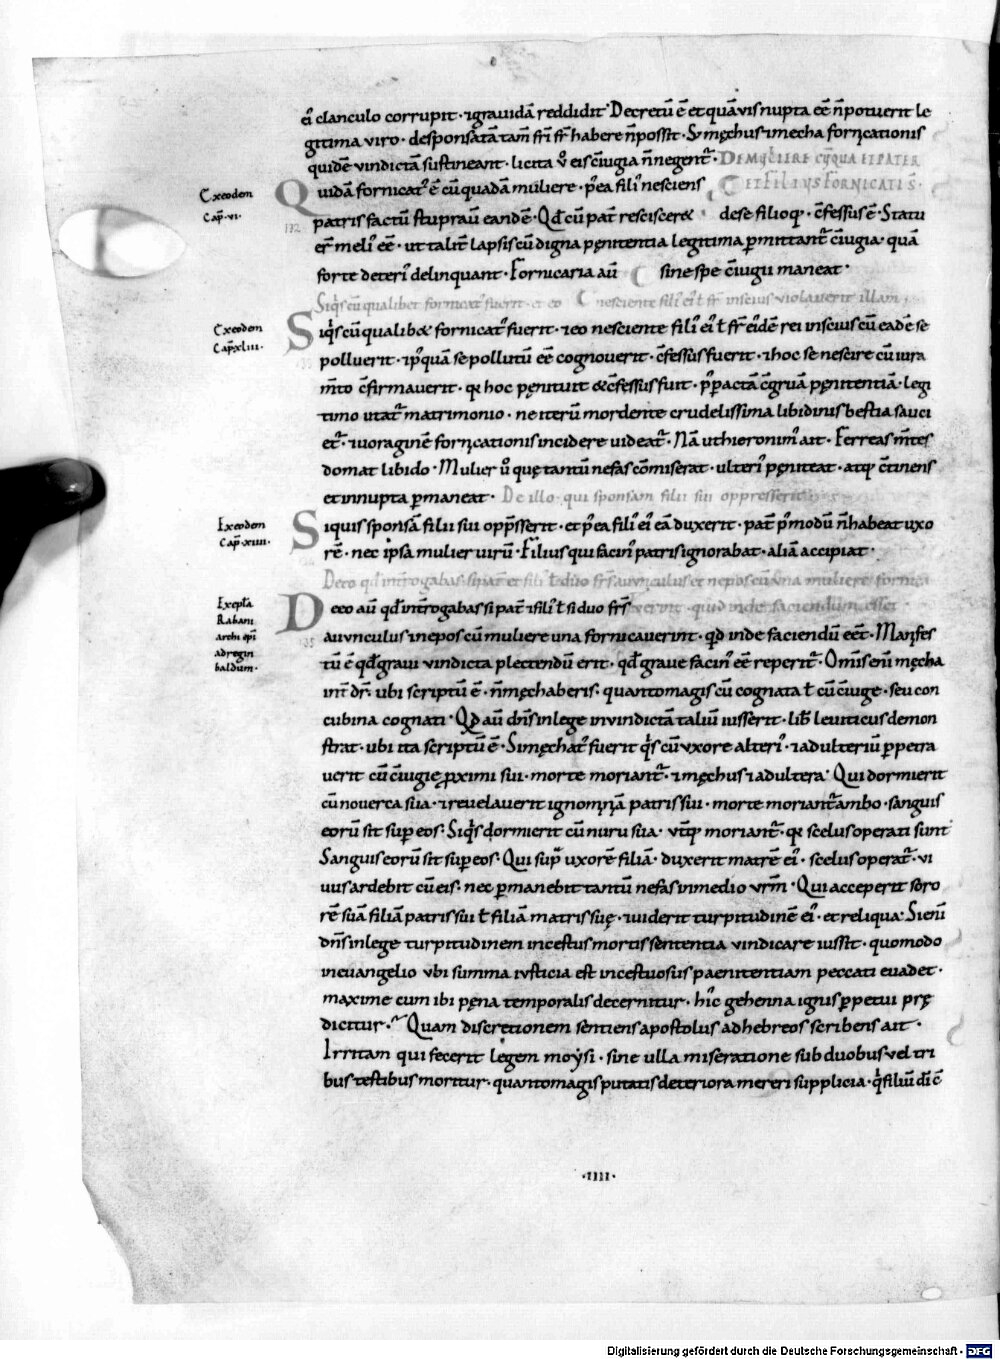 ei᾽ clanculo corrupit · ⁊ grauidā reddidit᾽ Decretū ē et quāvis nupta eē n̄ potuerit le
gitima viro · desponsatā tam̄ fr̄i fr̄ habere n̄ possit · Si męchus ⁊ mecha fornicationis
quidē vindictā sustineant · licita v̊ eis c̄iugia n̄ negent᷒ · DE MULIERE CŪ QUA ET PATER
Ex eodem
Cap̄ · vi ·
Quidā fornicat᷒ ē cū quadā muliere · p᷒ ea fili᷒ nesciens ET FILIUS FORNICATI S ·
patris factū stupravī eandē · Qd̄ cū pat᷒ rescisceret de se filioq; · c̄fessus ē · Statu
er̄ meli᷒ eē · ut talit᷒ lapsis cū digna pęnitentia legitima p̱mittant᷒ c̄iugia · quā
forte deteri᷒ delinquant · Fornicaria aū sine spe c̄iugii maneat ·
Siq̇s cū qualibet fornicat᷒ fuerit · et eo nesciente fili᷒ ei᷒ ł fr̄ inscius violaverit illam ·
Ex eodem
Cap̄ · xliii ·
Siq̇s cū qualibet fornicat᷒ fuerit · ⁊ eo nesciente fili᷒ ei᷒ ł fr̄ ei᷒dē rei inscius cū eadē se
polluerit · ⁊ p᷒quā se pollutū eē cognoverit · c̄fessus fuerit · ⁊ hoc se nescire cū iura
m̄to c̄firmauerit · q̨ hoc pęnituit et c̄fessus fuit · p᷒ p̱actā c̄gruā pęnitentiā · legi
timo utat᷒ matrimonio · ne iterū mordente crudelissima libidinis bestia sauci
et᷒ · ⁊ voraginē fornicationis incidere uideat᷒ · Nā ut hieronim᷒ ait · Ferreas m̄tes
domat libido · Mulier ů quę tantū nefas cōmiserat · ulteri᷒ pęniteat · atq; c̄tinens
et innupta p̱maneat · De illo · qui sponsam filii sui oppresserit
Ex eodem
Cap̄ · xiiii ·
Siquis sponsā filii sui opp̄sserit · et p᷒ ea fili᷒ ei᷒ eā duxerit · pat᷒ p᷒modū n̄ habeat uxo
rē · nec ipsa mulier virū · Filius qui facin᷒ patris ignorabat · aliā accipiat ·
De eo qd̄ int᷒rogabas · si pat᷒ et fili᷒ ł duo fr̄s avunculus et nepos cū una muliere fornica
Ex ep̄la
Rabani
archi ep̄i
ad regin
baldum ·
De eo aū qd̄ int᷒rogabas si pat᷒ ⁊ fili᷒ ł si duo fr̄s verint · quid inde faciendum esset
avunculus ⁊ nepos cū muliere una fornicauerint · qd̄ inde faciendū eēt · Manifes
tū ē qd̄ graui vindicta plectendū erit · qd̄ graue facin᷒ eē reperit᷒ · Om̄is enī męcha
int᷒dr̄ · ubi scriptū ē · n̄ męchaberis · quantomagis cū cognata ł cū c̄iuge · seu con
cubina cognati · Qd̄ aū dn̄s in lege in vindictā taliū iusserit · lib᷒ leviticus demon
strat · ubi ita scriptū ē · Si męchat᷒ fuerit q̇s cū vxore alteri᷒ · ⁊ adulteriū p̱petra
uerit cū c̄iuge p̱ximi sui · morte moriant᷒ · ⁊ męchus ⁊ adultera᷒ Qui dormierit
cū noverca sua · ⁊ reuelauerit ignominiā patris sui · morte moriant᷒ ambo · sanguis
eorū sit sup̱ eos · Siq̇s dormierit cū nuru sua · vt᷒q; moriant᷒ · q̨ scelus operati sunt
Sanguis eorū sit sup̱ eos · Qui sup᷒ uxorē filiā · duxerit matrē ei᷒ · scelus operat᷒ · vi
uus ardebit cū eis · nec p̱manebit tantū nefas in medio vr̄m · Qui acceperit soro
rē suā filiā patris sui ł filiā matris suę · ⁊ uiderit turpitudinē ei᷒ · et reliqua · Si enī
dn̄s in lege turpitudinem incestus mortis sententia vindicare iussit · quomodo
in euangelio vbi summa iusticia est incestuosus paenitentiam peccati euadet ·
maxime cum ibi pęna temporalis decernitur · hic᷒ gehenna ignis p̱petui prę
dicitur · Quam discretionem sentiens apostolus ad hebreos scribens ait ·
Irritam qui fecerit legem moysi · sine ulla miseratione sub duobus vel tri
bus testibus moritur · quantomagis putatis deteriora mereri supplicia · q̇ filiū dī c̄
· IIII ·
Digitalisierung gefördert durch die Deutsche Forschungsgemeinschaft - DFG